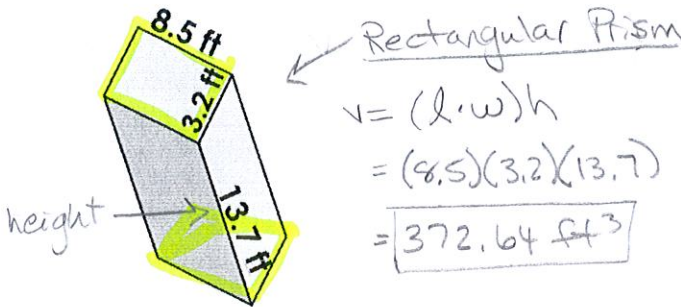 8.5 ft
3.2 ft
13.7 ft
height
Rectangular Prism
v = (l·w)h
= (8.5)(3.2)(13.7)
= 372.64 ft³